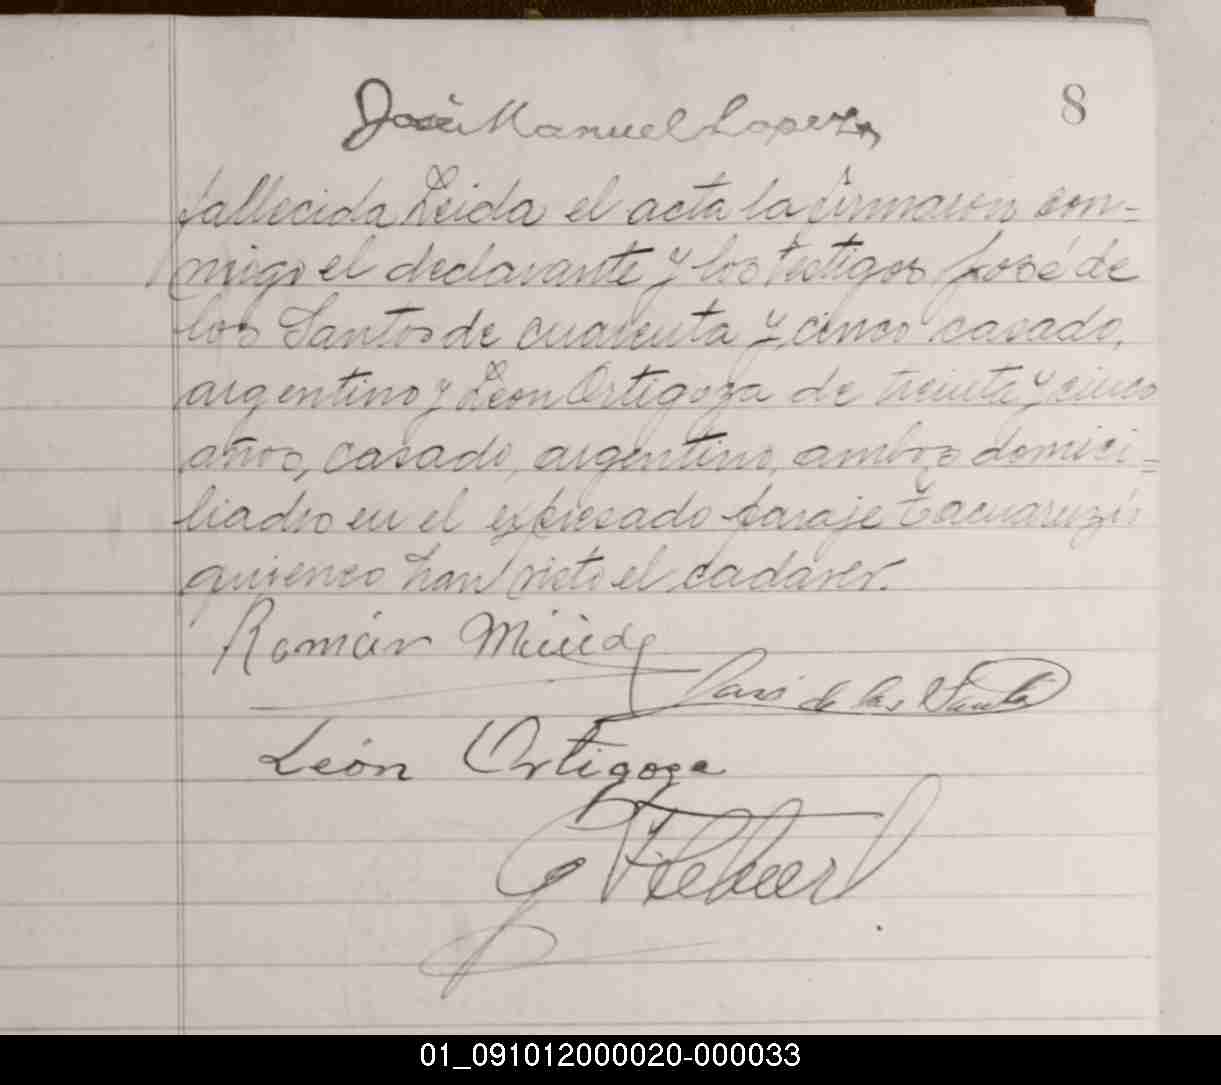 8
José Manuel Lopez
fallecida Leida el acta la firmaron con=
migo el declarante y los testigos José de
los Santos de cuarenta y cinco casado,
argentino y Leon Ortigoza de treinta y cinco
años, casado, argentino, ambos domici=
liados en el expresado paraje Tacuaruzú
quienes han visto el cadaver.
Román
José de los Santos
León Ortigoza
01_091012000020-000033